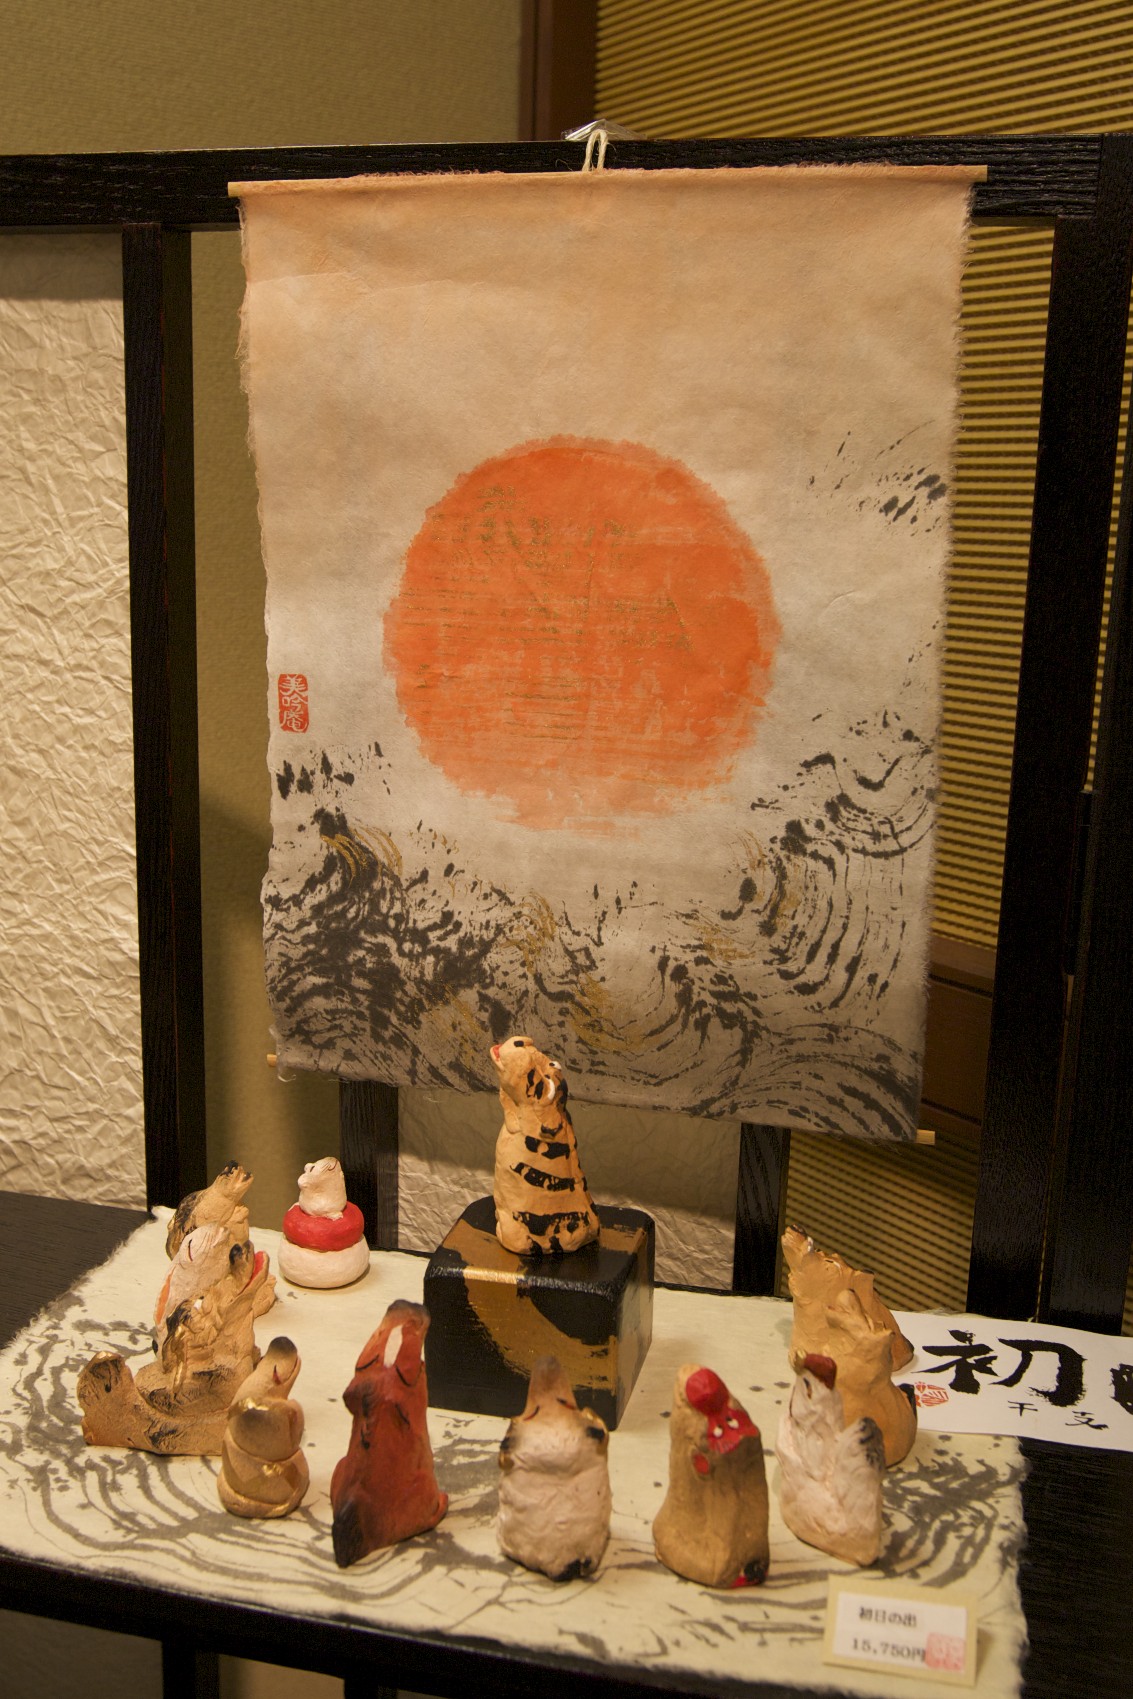 美吟庵
初
干支
初日の出
15,750円